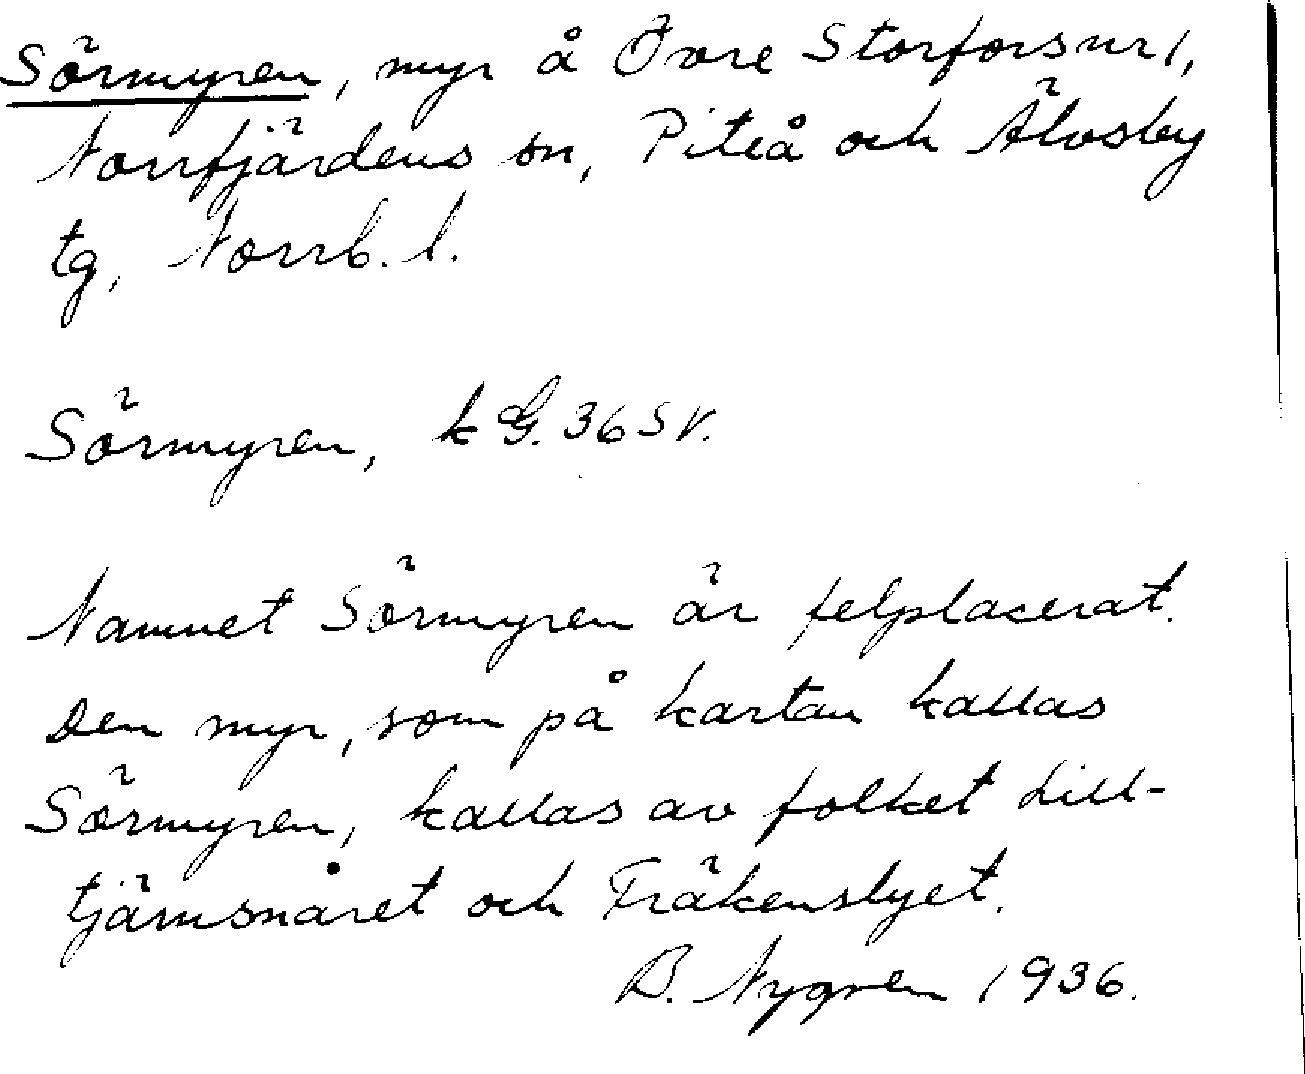 Sörmyren, myr å Övre Storfors nr 1,
Norrfjärdens sn, Piteå och Älvsby
tg, Norrb. l.
Sörmyren, k G. 36 SV.
Namnet Sörmyren är felplacerat.
Den myr, som på kartan kallas
Sörmyren, kallas av folket Lill-
tjärnsnåret och Fräkenslyet.
B. Nygren 1936.